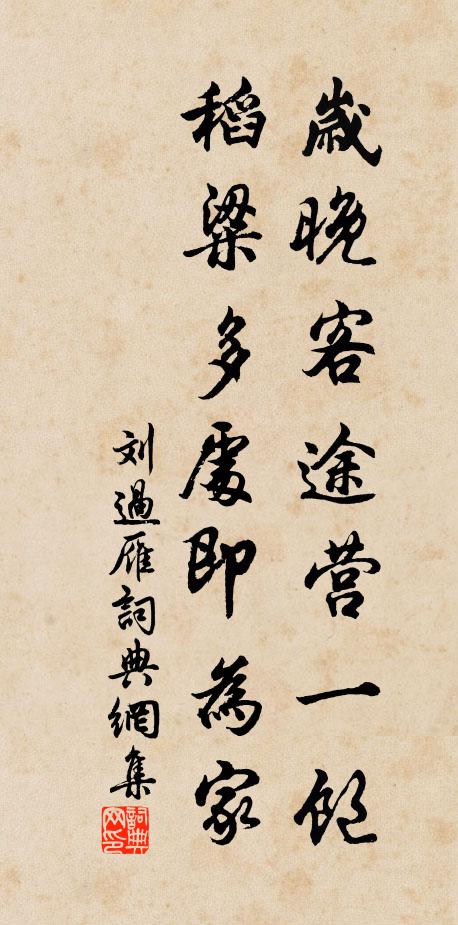 歲晚客途营一飽
稻粱多處即為家
刘過雁詞典網集
詞典网印